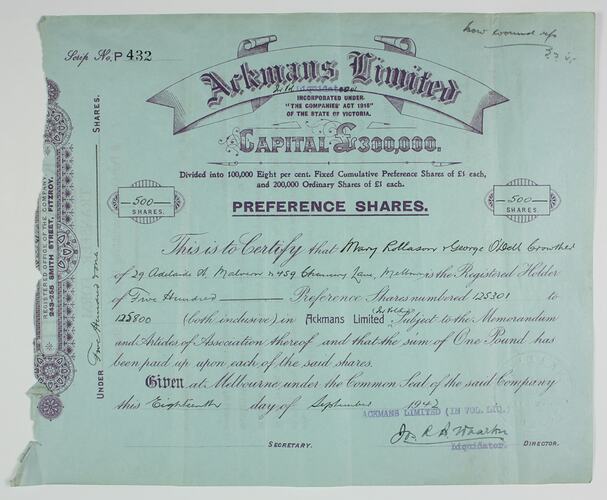 now wound up
Scrip No. P 432
Ackmans Limited
Liquidator
INCORPORATED UNDER
"THE COMPANIES' ACT 1915"
OF THE STATE OF VICTORIA.
CAPITAL £300,000.
Divided into 100,000 Eight per cent. Fixed Cumulative Preference Shares of £1 each,
and 200,000 Ordinary Shares of £1 each.
500
SHARES.
500
SHARES.
PREFERENCE SHARES.
This is to Certify that Mary Rollason & George Odell Crowther
of 29 Adelaide St. Malvern & 459 Chancery Lane, Melbne is the Registered Holder
of Five Hundred Preference Shares numbered 125301 to
125800 (both inclusive) in Ackmans Limited Subject to the Memorandum
and Articles of Association thereof and that the sum of One Pound has
been paid up upon each of the said shares.
Given at Melbourne under the Common Seal of the said Company
this Eighteenth day of September 1942
ACKMANS LIMITED (IN VOL. LIQ.)
Liquidator.
SECRETARY.
DIRECTOR.
REGISTERED OFFICE OF THE COMPANY
243-255 SMITH STREET, FITZROY.
UNDER Five Hundred & one SHARES.